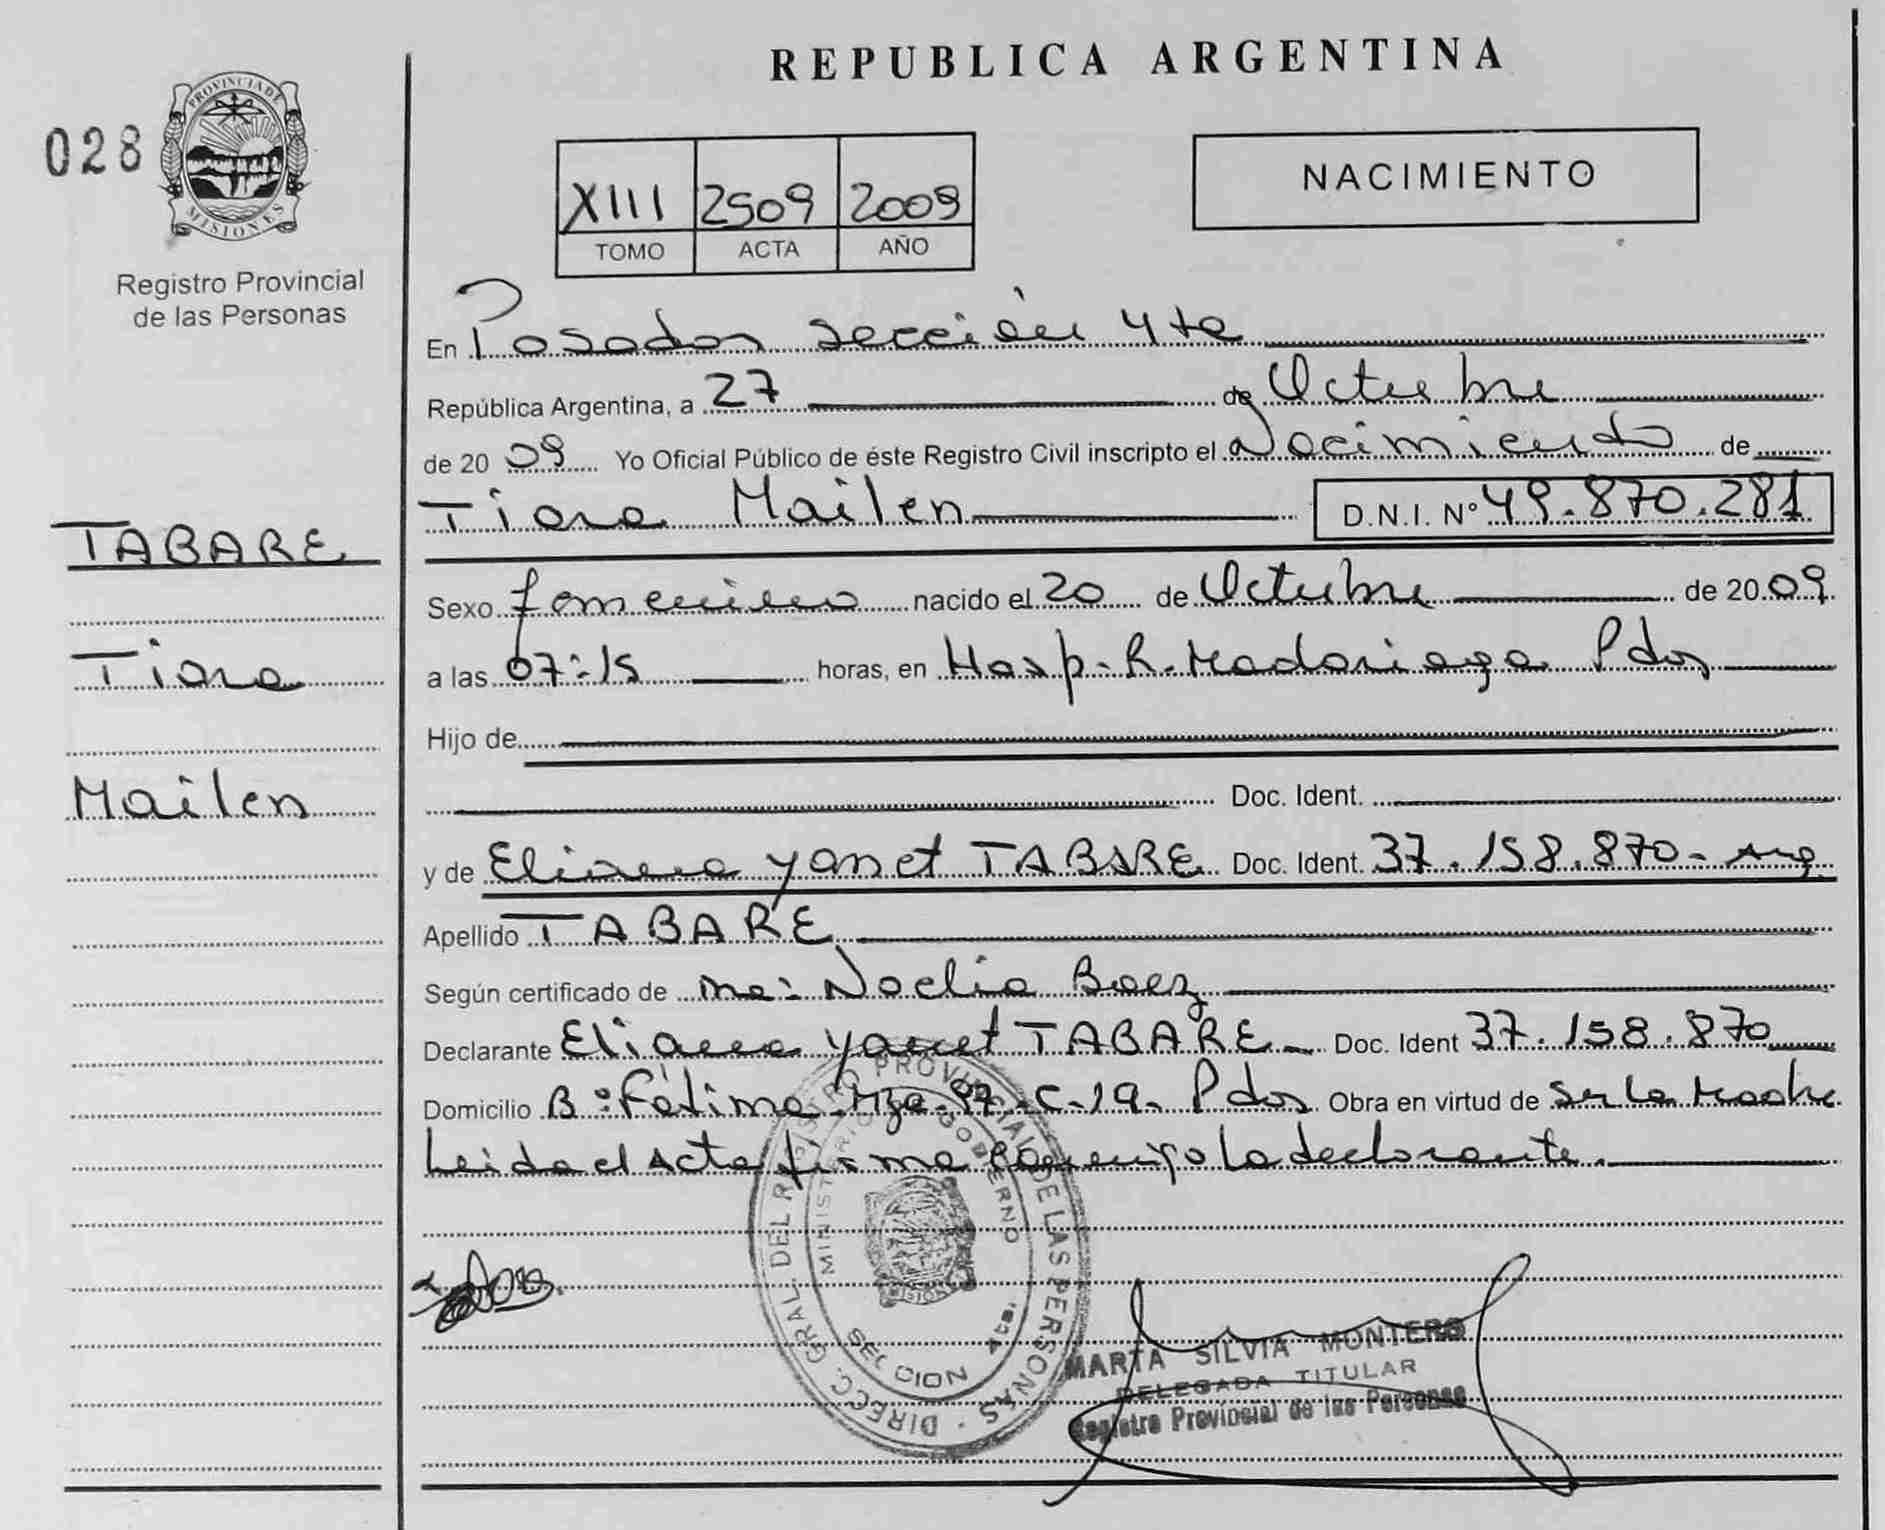 REPUBLICA ARGENTINA
028
PROVINCIA DE MISIONES
Registro Provincial
de las Personas
XIII 2509 2009
TOMO ACTA AÑO
NACIMIENTO
En Posadas sección 4ta
República Argentina, a 27 de Octubre
de 2009 Yo Oficial Público de éste Registro Civil inscripto el Nacimiento de
Tiara Mailen D.N.I. N° 49.870.281
TABARE
Tiara
Mailen
Sexo femenino nacido el 20 de Octubre de 2009
a las 07:15 horas, en Hosp. R. Madariaga Pdas
Hijo de
Doc. Ident.
y de Eliana Yanet TABARE Doc. Ident. 37.158.870- Arg
Apellido TABARE
Según certificado de Noelia Baez
Declarante Eliana Yanet TABARE Doc. Ident 37.158.870
Domicilio B° Fátima Mza. 97. C-19- Pdas Obra en virtud de ser la Madre
Leida el Acta firma conmigo la declarante.
DIRECC. GRAL. DEL REGISTRO PROVINCIAL DE LAS PERSONAS
MINISTERIO GOBIERNO
MISIONES
SECCION
MARTA SILVIA MONTERO
DELEGADA TITULAR
Registro Provincial de las Personas